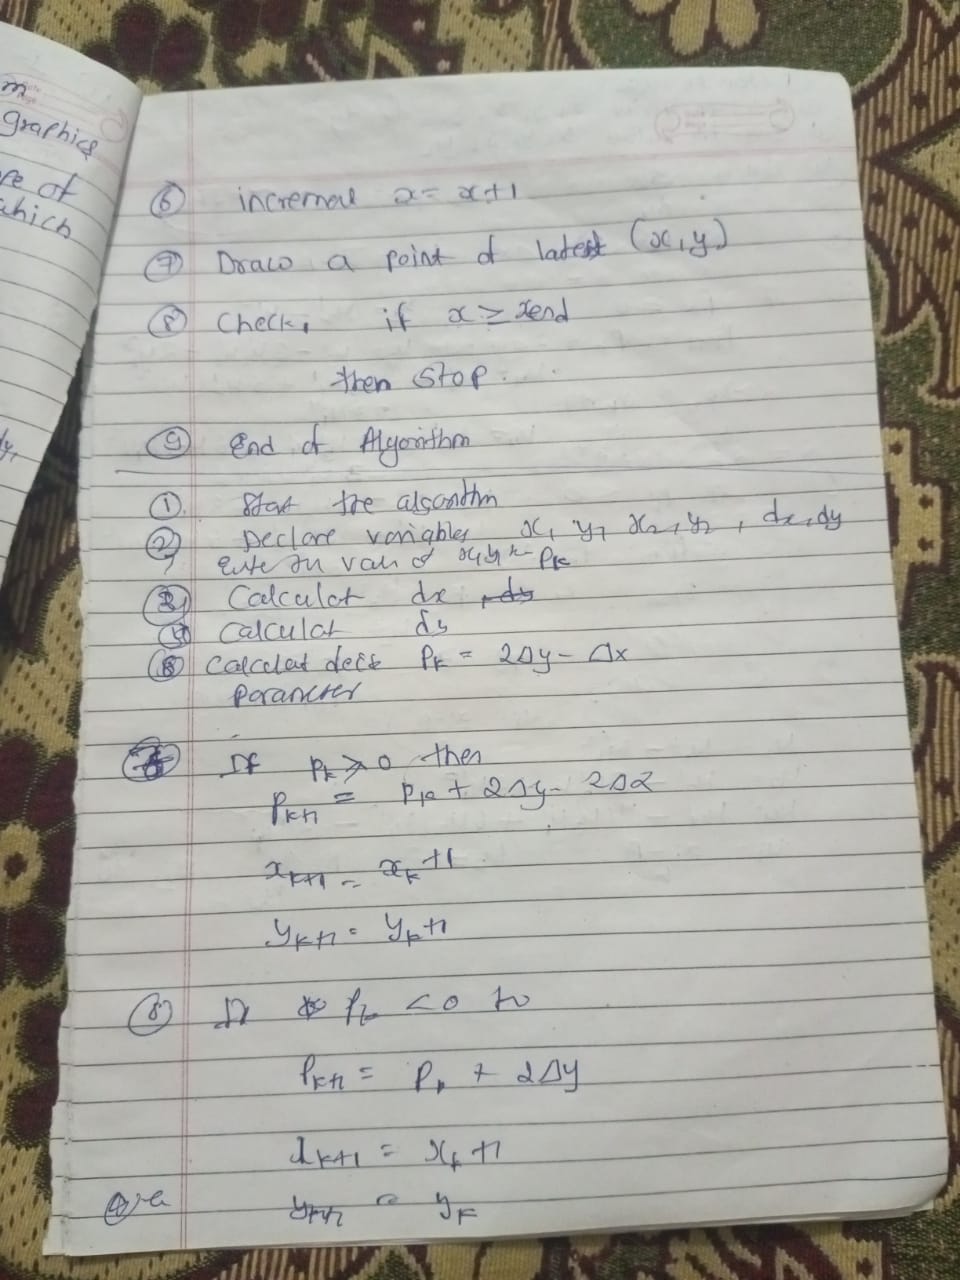 m
graphics
re of
which
⑥ incremal x = x+1
⑦ Draw a point of latest (x, y)
⑧ Check, if x ≥ xend
then stop.
⑨ End of Algorithm
① Start the algorithm
② Declare variables x1 y1 x2, y2, dx, dy
Pk
③ Calculat dx
④ Calculat dy
Calculat Pk = 2Δy - Δx
parameter
If Pk ≥ 0 then
Pk+1 = Pk + 2Δy - 2Δx
xk+1 = xk + 1
yk+1 = yk + 1
⑧ If Pk < 0
Pk+1 = Pk + 2Δy
xk+1 = xk + 1
yk+1 = yk